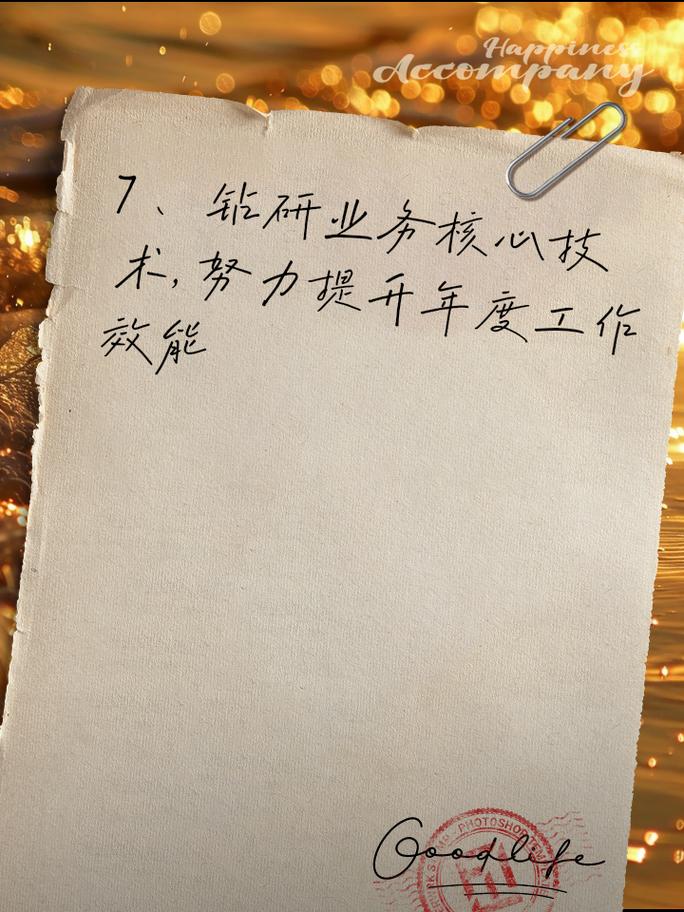 Happiness
Accompany
7、钻研业务核心技
术,努力提升年度工作
效能
PHOTOSHOP
Goodlife